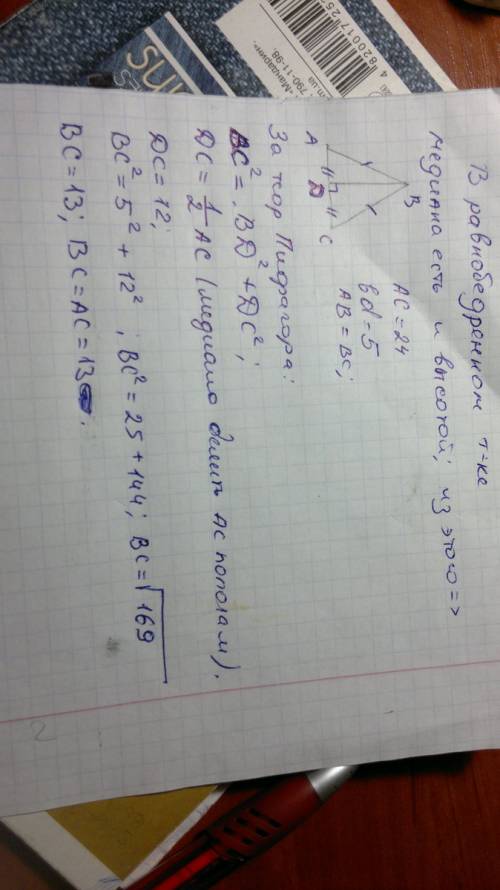 В равнобедренном т-ке
медиана есть и высотой; из этого =>
B
A
D
C
AC = 24
bd = 5
AB = BC;
За теор Пифагора:
BC² = BD² + DC²;
DC = 1/2 AC (медиана делить AC пополам).
DC = 12;
BC² = 5² + 12²; BC² = 25 + 144; BC = √169
BC = 13; BC = AC = 13.
2
790-11-98,
«Мандарин»,
m.ua
4 820017 25